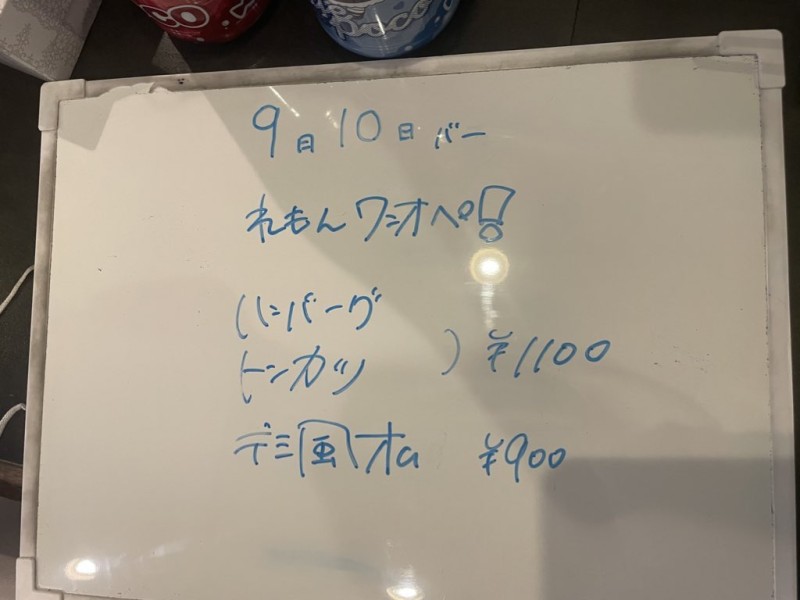 9日10日バー
れもんワンオペ!
ハンバーグ
トンカツ ) ¥1100
デミ風オム ¥900